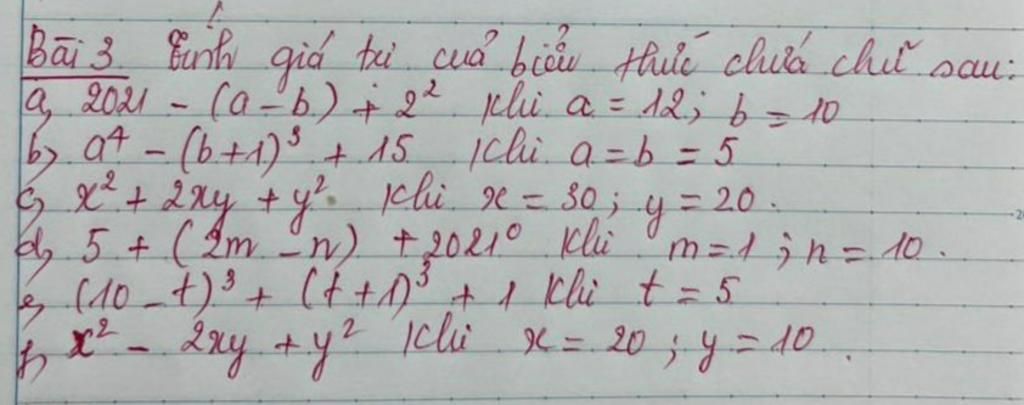 Bài 3 Tính giá trị của biểu thức chứa chữ sau:
a, 2021 - (a - b) + 2² Khi a = 12; b = 10
b, a⁴ - (b+1)³ + 15 Khi a = b = 5
c, x² + 2xy + y² Khi x = 30; y = 20.
d, 5 + (2m - n) + 2021⁰ Khi m = 1; n = 10.
e, (10 - t)³ + (t + 1)³ + 1 Khi t = 5
f, x² - 2xy + y² Khi x = 20; y = 10.